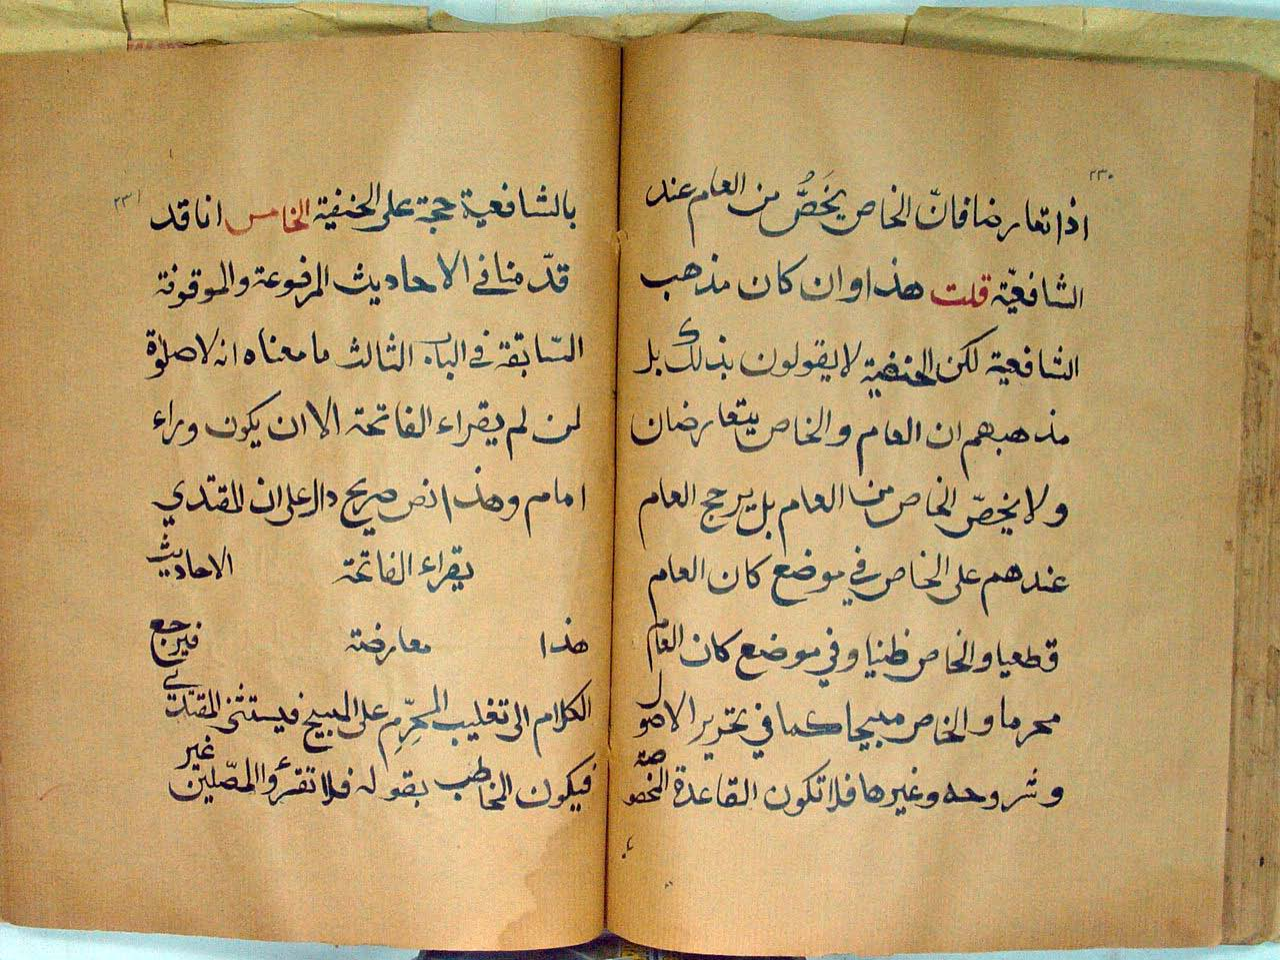 ٢٣٠
اذا تعارضا فانّ الخاص يخَصُّ من العام عند
الشافعيّة قلت هذا وان كان مذهب
الشافعية لكن الحنفية لا يقولون بذلك بل
مذهبهم ان العام والخاص يتعارضان
ولا يخصّ الخاص من العام بل يرجح العام
عندهم على الخاص في موضع كان العام
قطعيا والخاص ظنيا وفي موضع كان العام
محرما والخاص مبيحا كما في تحرير الاصول
وشروحه وغيرها فلا تكون القاعدة المخصوصة
٢٣١
بالشافعية حجة على الحنفية الخامس انا قد
قدّمنا في الاحاديث المرفوعة والموقوفة
السّابقة في الباب الثالث ما معناه انه لا صلوة
لمن لم يقراء الفاتحة الا ان يكون وراء
امام وهذا نص صريح دال على ان المقتدي
يقراء الفاتحة الاحاديث
هذا معارضة فيرجع
الكلام الى تغليب المحرِّم على المبيح فيستثنى المقتدي
فيكون المخاطب بقوله فلا تقرؤا المصّلين غير